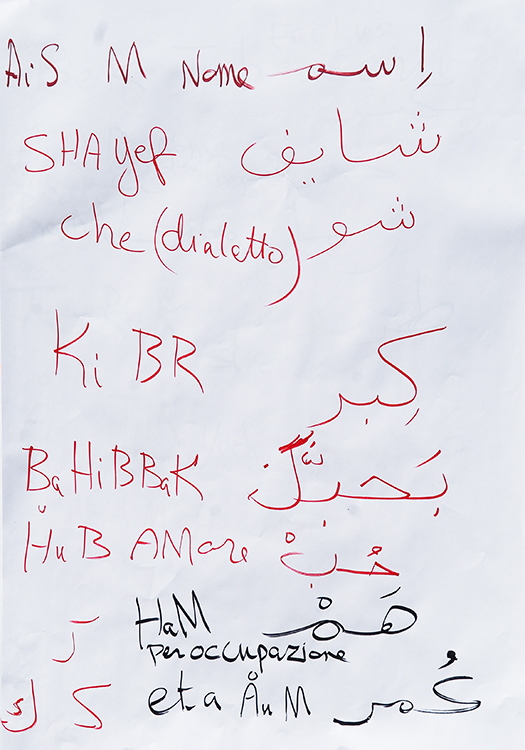 AiS M Nome اِسم
SHAyef شايف
che (dialetto) شو
Ki BR كِبر
BaHiBBaK بَحبَّك
HuB AMore حُبْ
HaM هَمْ
peroccupazione
رَ
ك ک eta ÅuM عُمر